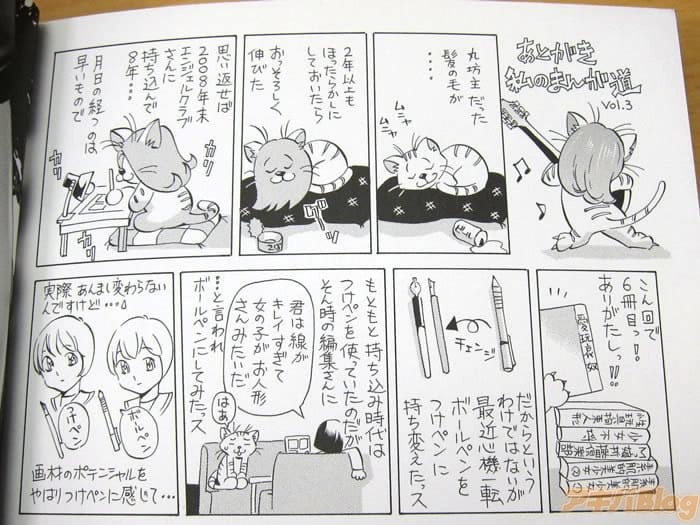 あとがき
私のまんが道
Vol.3
丸坊主だった
髪の毛が
‥‥
ムニャ
ムニャ
ビール
2年以上も
ほったらかしに
しておいたら
おっそろしく
伸びた
思い返せば
2008年末
エンジェルクラブ
さんに
持ち込んで
8年‥‥
月日の経つのは
早いもので
ガリ
ガリ
こん回で
6冊目っ!!
ありがたしっ!!
だからという
わけではないが
最近心機一転
ボールペンを
つけペンに
持ち変えたっス
チェンジ
もともと持ち込み時代は
つけペンを使っていたのだが
そん時の編集さんに
君は線が
キレイすぎて
女の子がお人形
さんみたいだ
はあ
‥‥と言われ
ボールペンにしてみたっス
実際あんまし変わらない
んですけど‥‥
ボールペン
つけペン
画材のポテンシャルを
やはりつけペンに感じて‥‥
アキバBlog